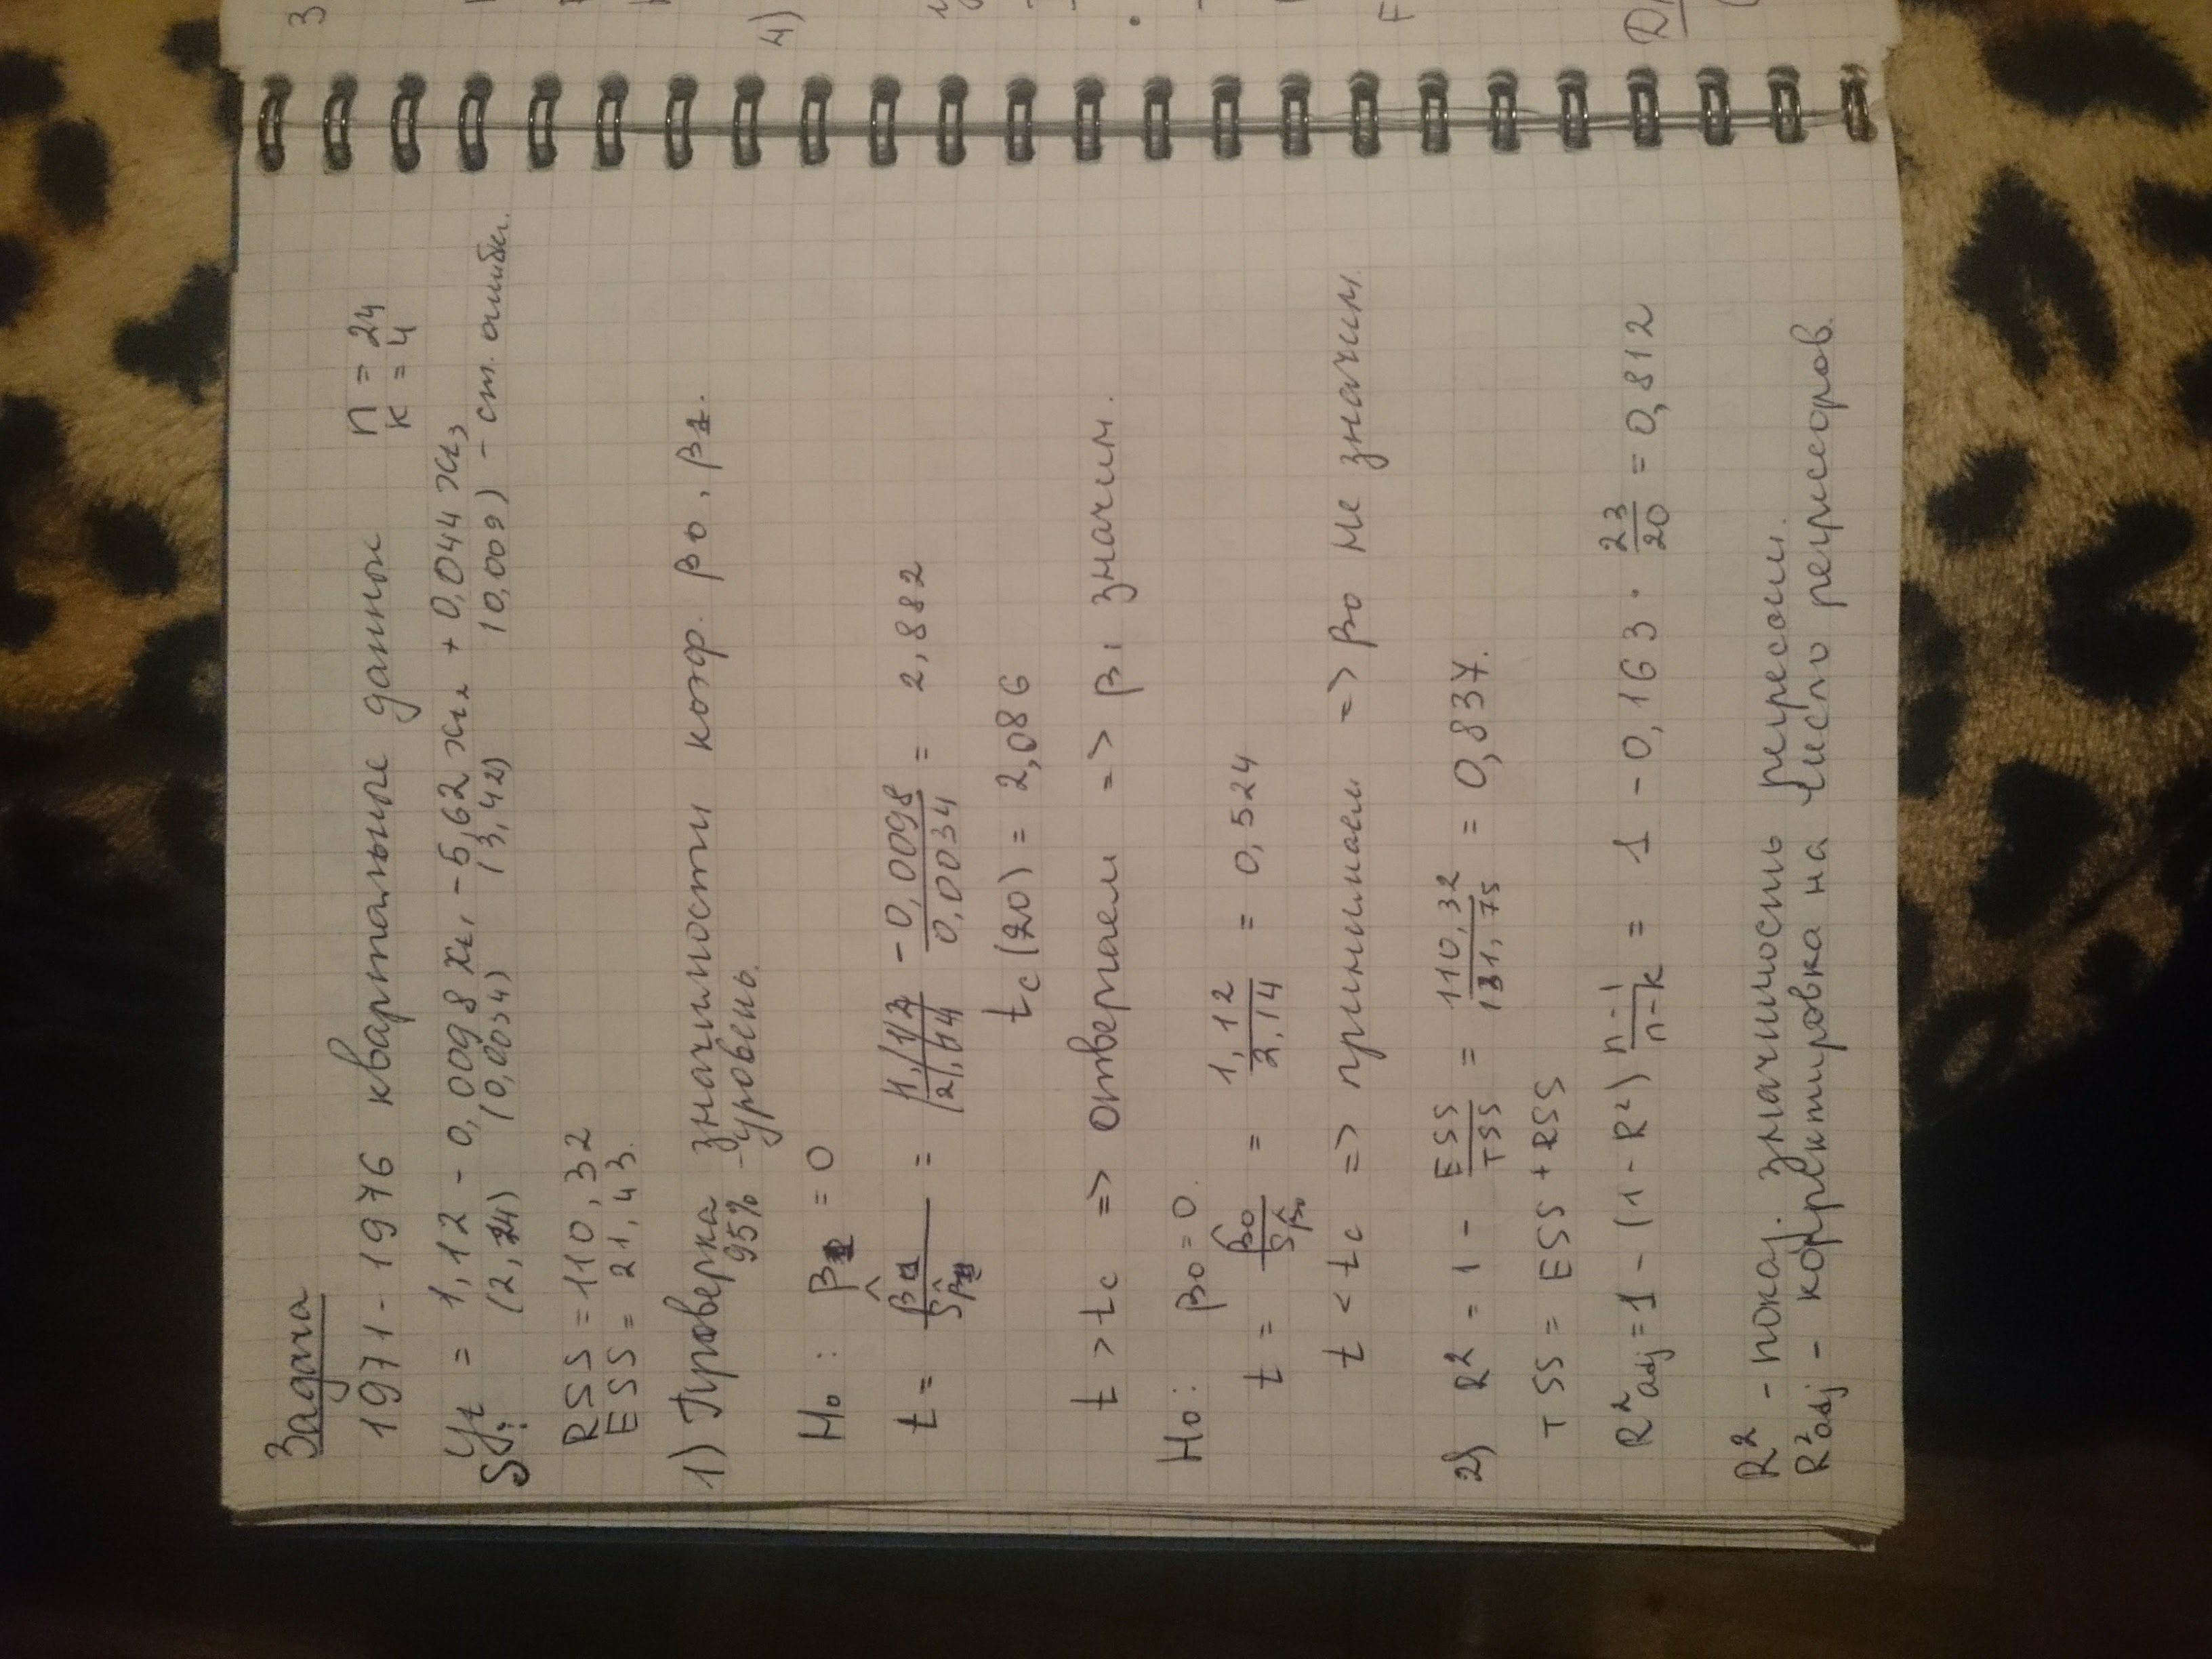 Задача
1971 - 1976 квартальные данные n = 24
k = 4
yt = 1,12 - 0,0098 xt1 - 5,62 xt2 + 0,044 xt3
Si: (2,14) (0,0034) (3,42) (0,009) - ст. ошибки.
RSS = 110,32
ESS = 21,43.
1) Проверка значимости коэф. β0, β1.
95% - уровень.
H0: β1 = 0
t = β̂1/Sβ̂1 = -0,0098/0,0034 = 2,882
tc(20) = 2,086
t > tc => отвергаем => β1 значим.
H0: β0 = 0.
t = β̂0/Sβ̂0 = 1,12/2,14 = 0,524
t < tc => принимаем => β0 не значим.
2) R² = 1 - ESS/TSS = 110,32/131,75 = 0,837.
TSS = ESS + RSS
R²adj = 1 - (1 - R²) n-1/n-k = 1 - 0,163 · 23/20 = 0,812
R² - показ. значимость регрессии.
R²adj - корректировка на число регрессоров.
3
4)
F